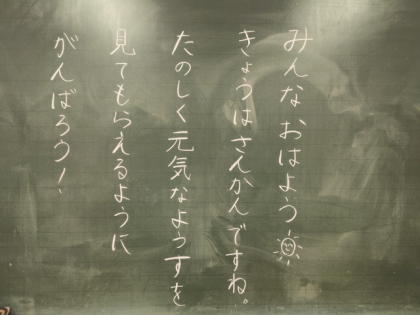 みんな おはよう
きょうは さんかんですね。
たのしく元気なようすを
見てもらえるように
がんばろう！